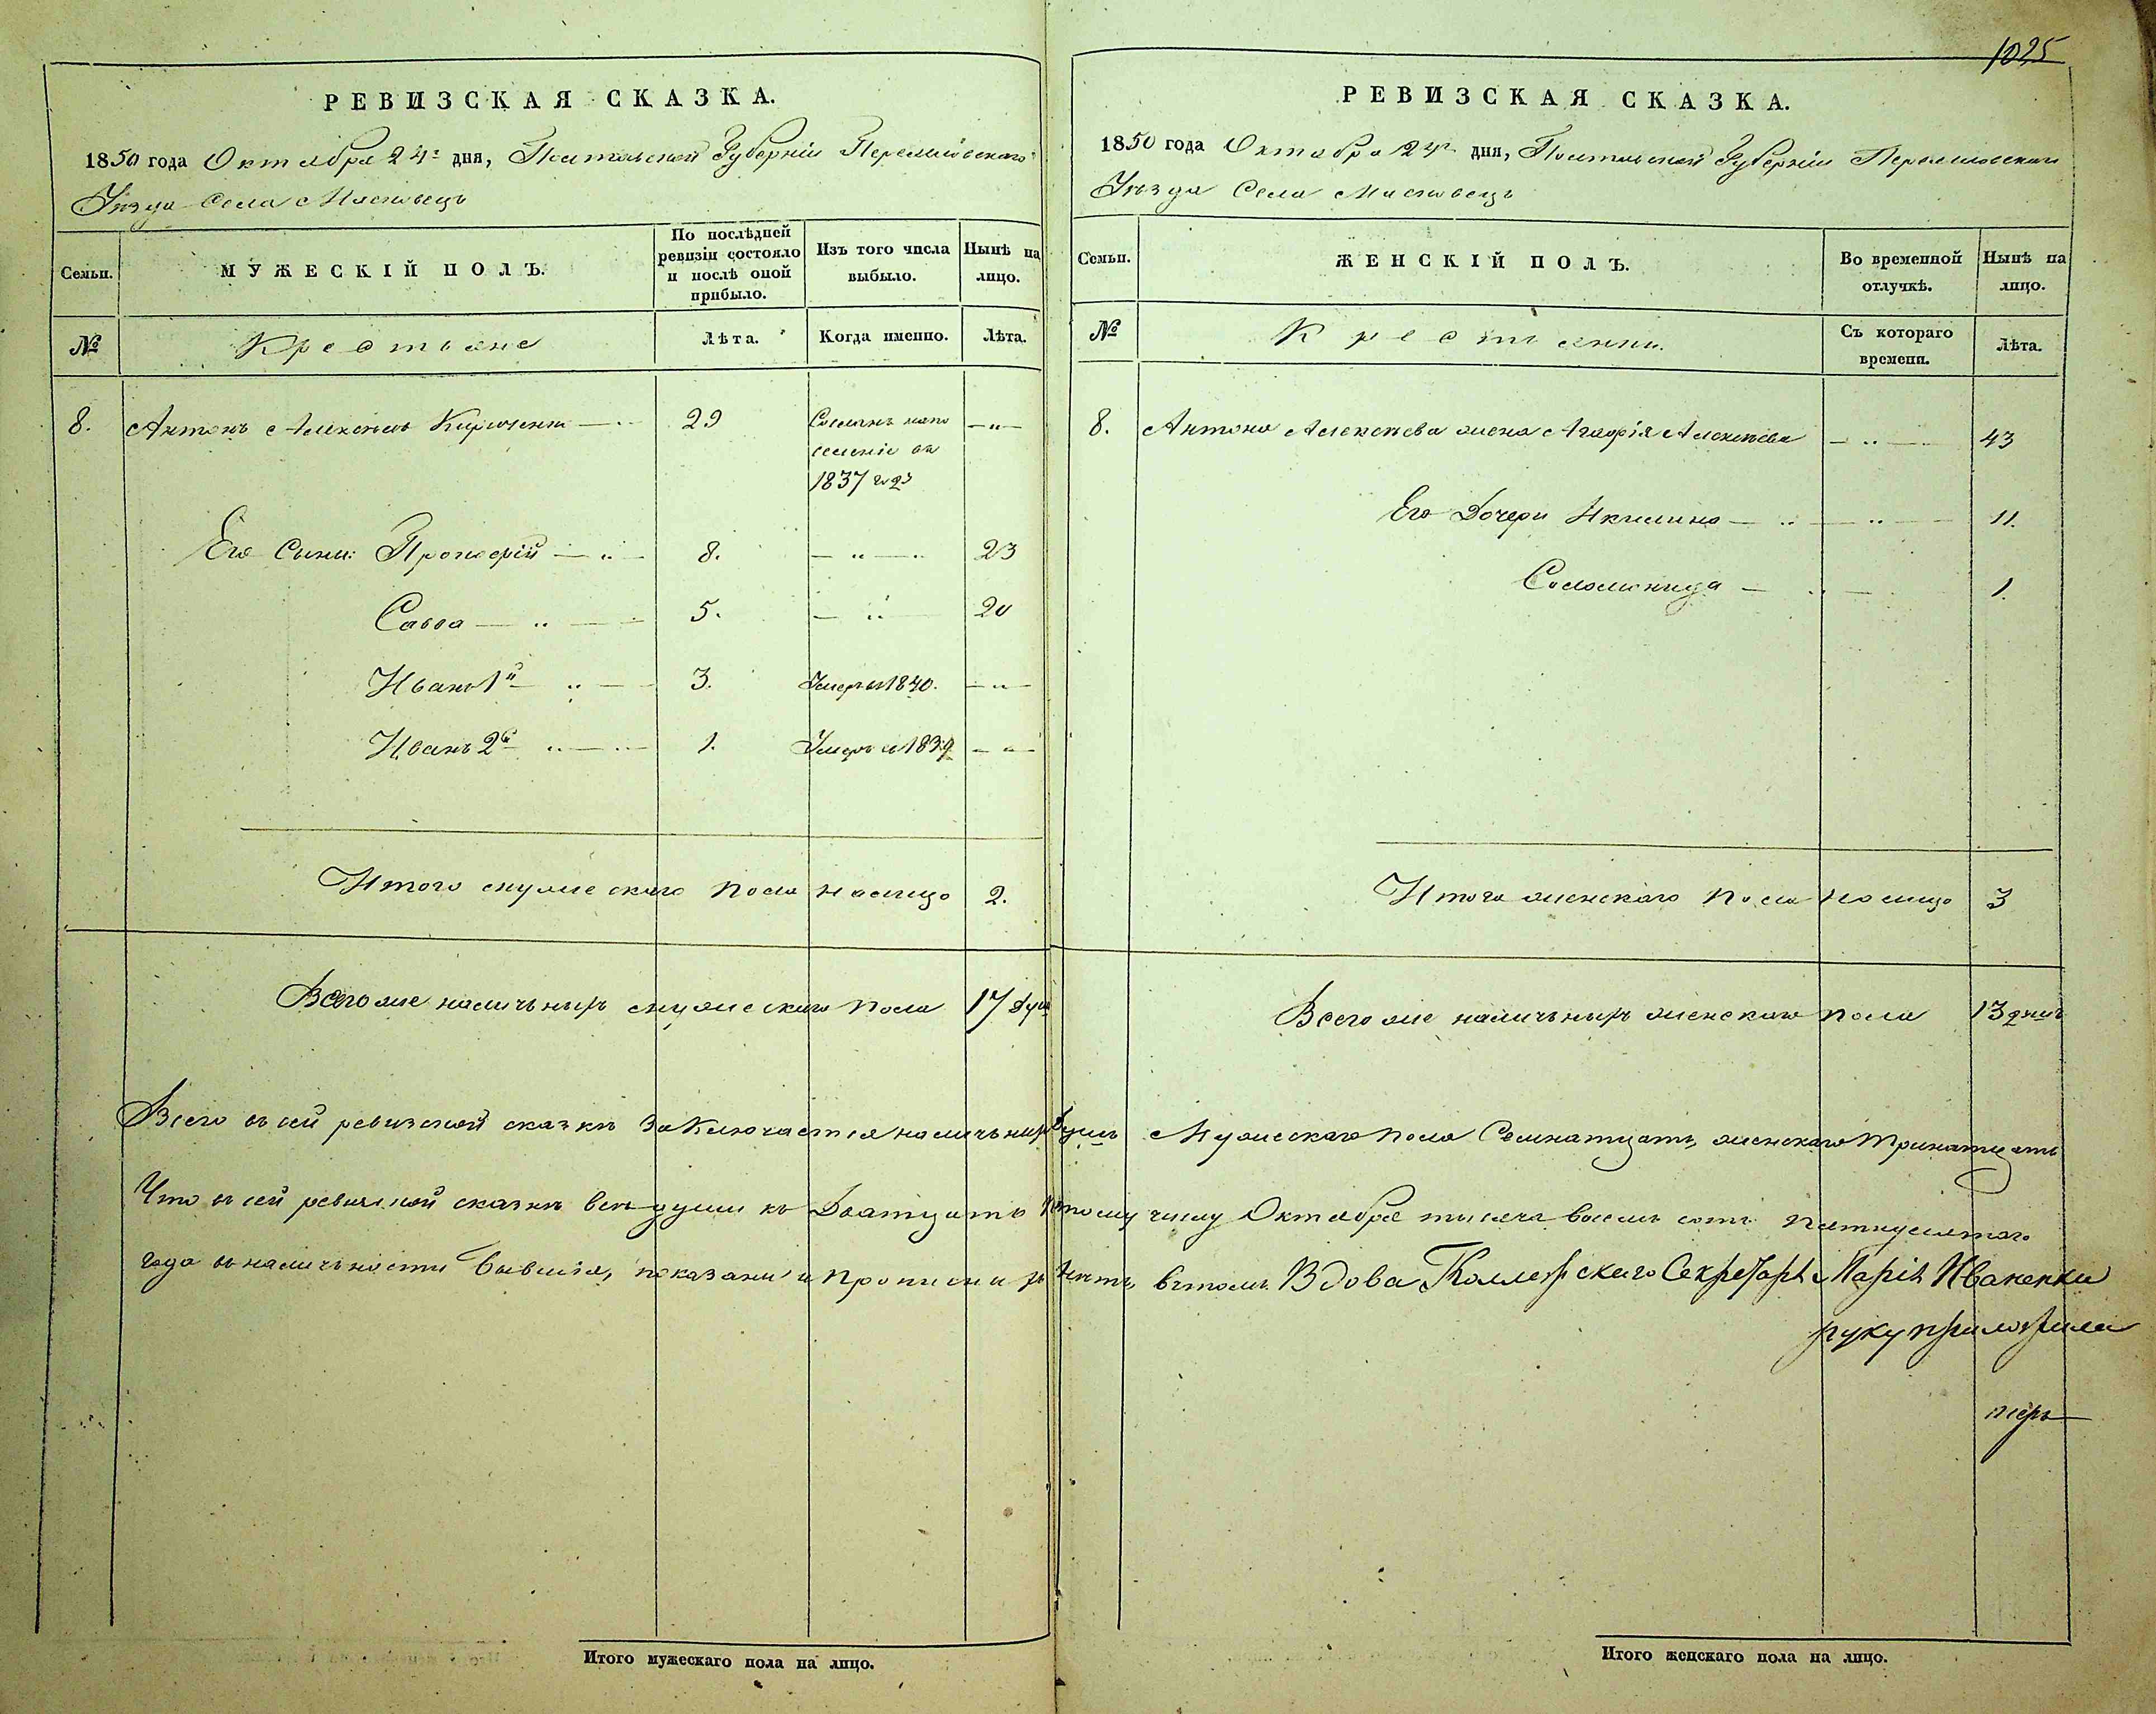 1025
РЕВИЗСКАЯ СКАЗКА.
1850 года Октября 24го дня, Полтавской Губерніи Переяславскаго
Уѣзда Села Масковецъ
Семьи.
МУЖЕСКІЙ ПОЛЪ.
По послѣдней ревизіи состояло и послѣ оной прибыло.
Изъ того числа выбыло.
Нынѣ на лицо.
№
Крестьяне
Лѣта.
Когда именно.
Лѣта.
8. Антонъ Алексѣевъ Кириченко 29 Сосланъ напо
селеніе въ
1837 году
Его Сыни: Прокофій 8. 23
Савва 5. 20
Иванъ 1й 3. Умеръ в 1840.
Иванъ 2й 1. Умеръ в 1839
Итого мужескаго пола налицо 2.
Всегоже наличныхъ мужескаго пола 17 душ
РЕВИЗСКАЯ СКАЗКА.
1850 года Октября 24го дня, Полтавской Губерніи Переяславскаго
Уѣзда Села Масковецъ
Семьи.
ЖЕНСКІЙ ПОЛЪ.
Во временной отлучкѣ.
Нынѣ на лицо.
№
Крестьянки.
Съ котораго времени.
Лѣта.
8. Антона Алексѣева жена Агафія Алексѣева 43
Его Дочери Акилина 11.
Соломонида 1.
Итого женскаго пола налицо 3
Всего же наличныхъ женскаго пола 13 душъ
Всего въ сей ревизской сказкѣ Заключается наличныхъ душъ Мужескаго пола Семнатцать, женскаго тринатцать
Что въ сей ревизской сказкѣ всѣ души къ Дватцать четвертому числу Октября тысяча восемь сотъ пятидесятаго
года въ наличности бывшія, показани и прописнихъ нѣтъ, вътомъ Вдова Коллежскаго Секретаря Марія Иваненкова
руку приложила
Итого мужескаго пола на лицо.
Итого женскаго пола на лицо.